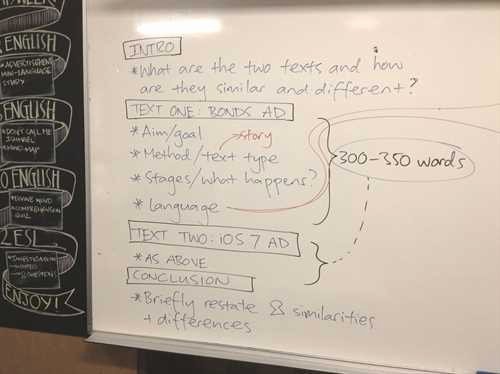 ENGLISH
*ADVERTISEMENT
MINI-LANGUAGE
STUDY
ENGLISH
*DON'T CALL ME
ISHMAEL
*MIND-MAP
ENGLISH
*COMPREHENSION
QUIZ
ESL
ENJOY!
INTRO
*What are the two texts and how
are they similar and different?
TEXT ONE: BONDS AD
*Aim/goal
story
*Method/text type
*Stages/what happens?
*Language
300-350 words
TEXT TWO: iOS 7 AD
*AS ABOVE
CONCLUSION
*Briefly restate & similarities
+ differences